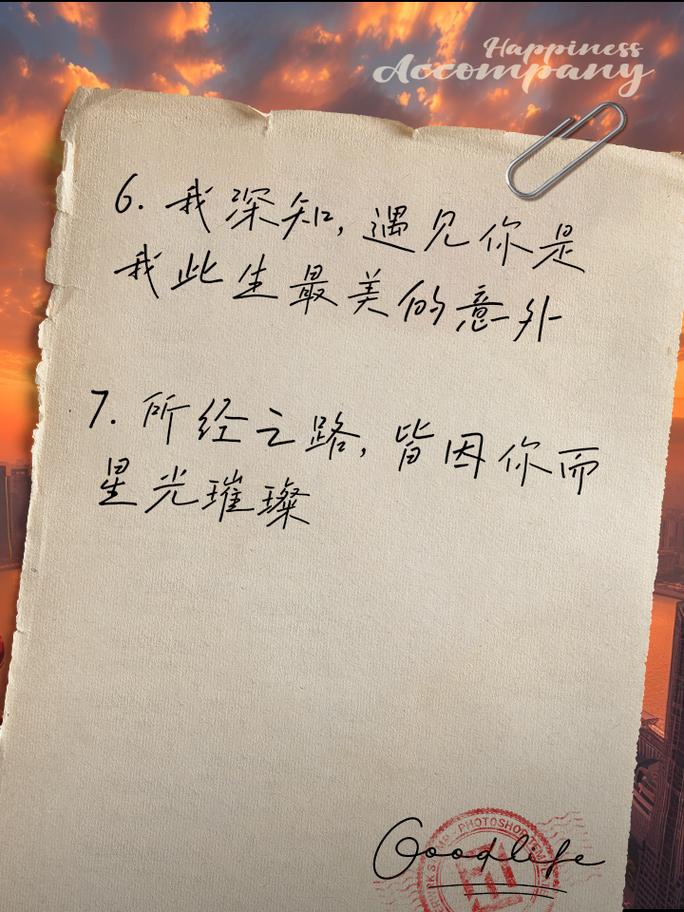 Happiness
Accompany
6. 我深知, 遇见你是
我此生最美的意外
7. 所经之路, 皆因你而
星光璀璨
Goodlife